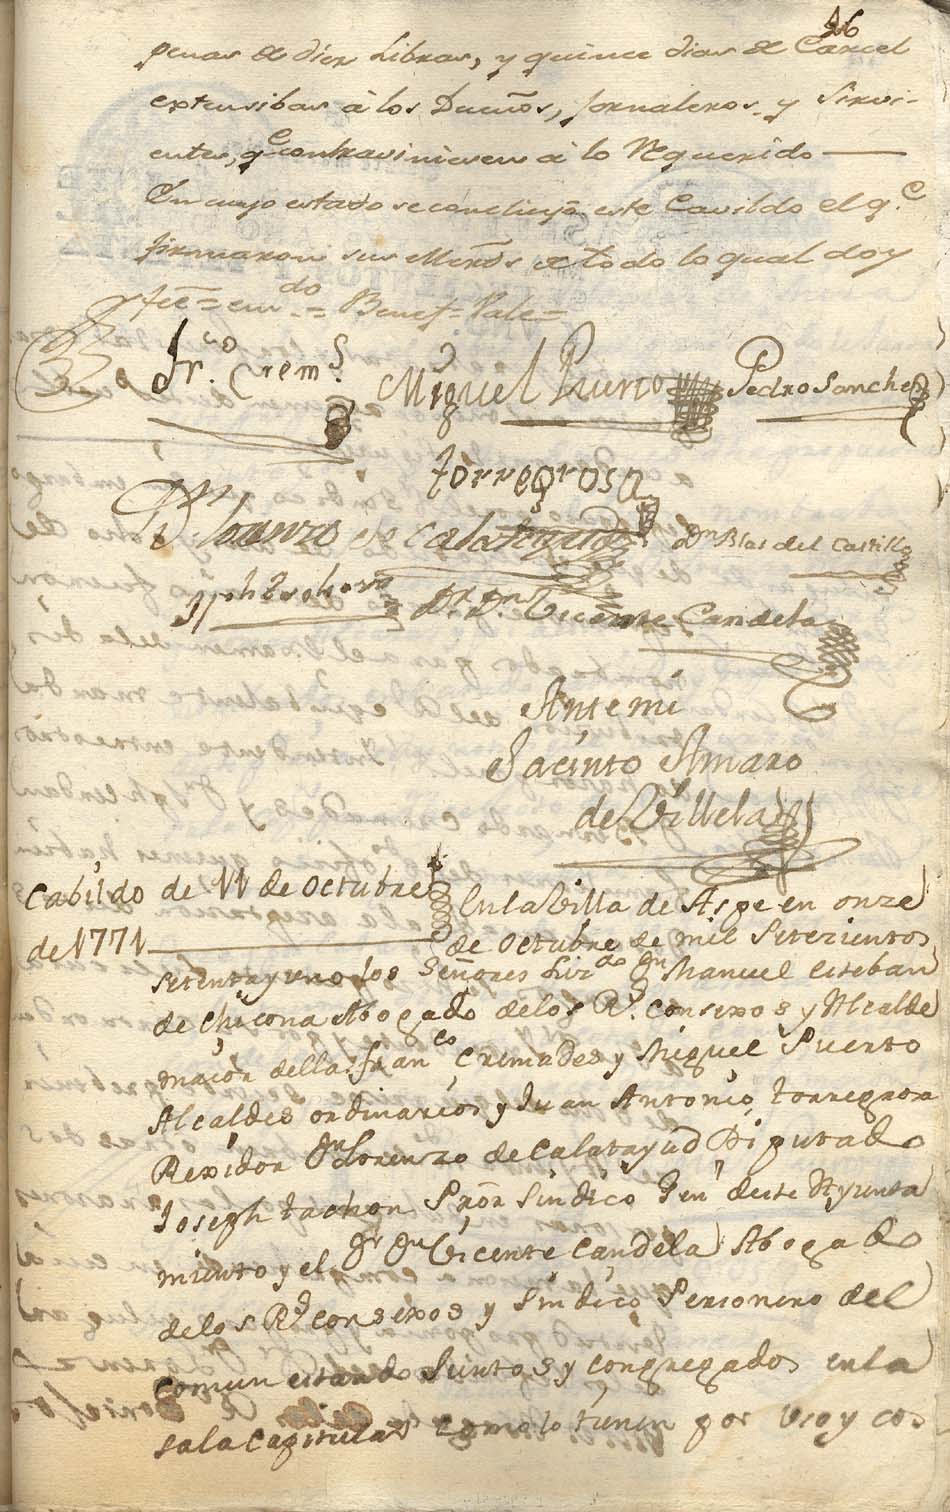 46
penas de diez Libras, y quince dias de Carcel
extensibas â los Dueños, Jornaleros, y Sirvi-
entes, qe contraviniesen â lo Requerido
En cuyo estado se concluyó este Cavildo el q.e
firmaron sus Mercds de todo lo qual doy
feê = = Benef = Vale =
Fr.co Crem.s Miguel Puerto Pedro Sanchez
torregrosa
Dn Lorenzo de Calatayud Dn Blas del Castillo
Jph Dr. Dn Vicente Candela
Antemi
Jacinto Amaro
de Villela
Cabildo de 11 de Octubre
de 1771
En la Villa de Aspe en onze
de Octubre de mil Setezientos
Setenta y uno los Señores Lizdo Dn Manuel Esteban
de Chicona Abogado delos Rs. Consexos y Alcalde
maior della, Franco Cremades y Miguel Puerto
Alcaldes ordinarios y Juan Antonio torregrosa
Rexidor Dn Lorenzo de Calatayud Diputado
Joseph tachon Pror Sindico Genl deste Ayunta
miento y el Dr Dn Vicente Candela Abogado
delos Rs Consexos y Sindico Personero del
comun estando Juntos y congregados en la
sala Capitular como lo tienen por uso y cos